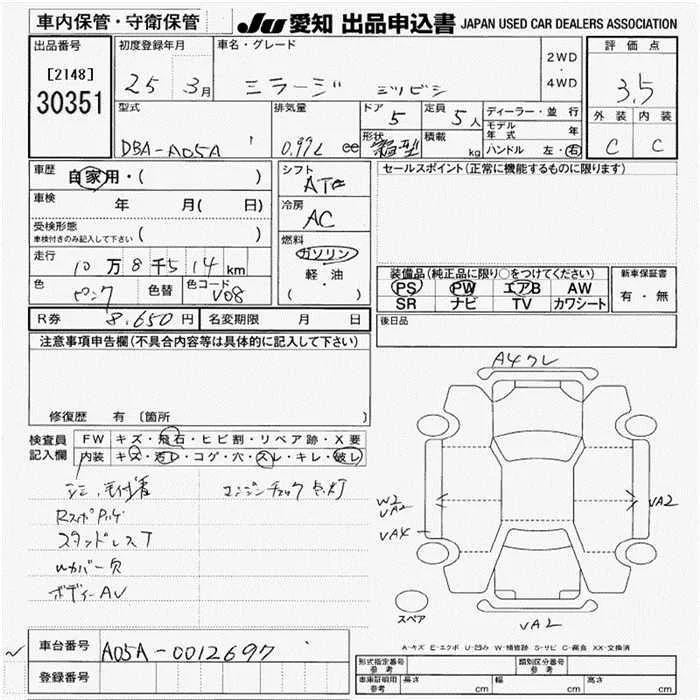 車内保管・守衛保管
JU 愛知 出品申込書 JAPAN USED CAR DEALERS ASSOCIATION
出品番号
[2148]
30351
初度登録年月
25 3月
車名・グレード
ミラージ ミツビシ
2WD
・
4WD
評価点
3.5
外装 内装
C C
型式
DBA-A05A
排気量
0.99L cc
ドア
5
形状
箱型
定員
5人
積載
kg
ディーラー・並行
モデル年式 年
ハンドル 左・右
車歴
自家用・( )
車検
年 月( 日)
受検形態
車検付きのみ記入して下さい ( )
走行
10万8千514km
色
ピンク
色替
色コード
V08
シフト
AT
冷房
AC
燃料
ガソリン
軽・油
( )
セールスポイント(正常に機能するものに限ります)
装備品(純正品に限り○をつけてください)
PS PW エアB AW
SR ナビ TV カワシート
新車保証書
有・無
R券 8,650円
名変期限 月 日
後日品
注意事項申告欄(不具合内容等は具体的に記入して下さい)
修復歴 有〔箇所
検査員
記入欄
FW キズ・飛石・ヒビ割・リペア跡・X要
内装 キズ・汚レ・コゲ・穴・スレ・キレ・破レ
エンジンチェック点灯
スタッドレスT
カバー欠
ボディーAU
A4クレ
W2
UA2
UA4
UA2
UA2
スペア
A-キズ E-エクボ U-凹み W-補修跡 S-サビ C-腐食 XX-交換済
車台番号
A05A-0012697
登録番号
形式指定番号
参考
類別区分番号
参考
車庫証明用
参考
長さ cm
幅 cm
高さ cm